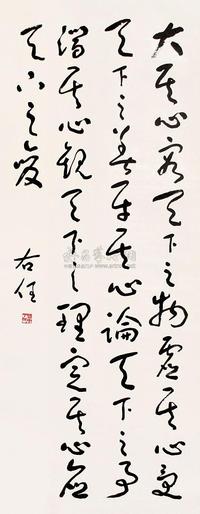 大其心容天下之物虛其心受
天下之善平其心論天下之事
潛其心觀天下之理定其心應
天下之變
右任